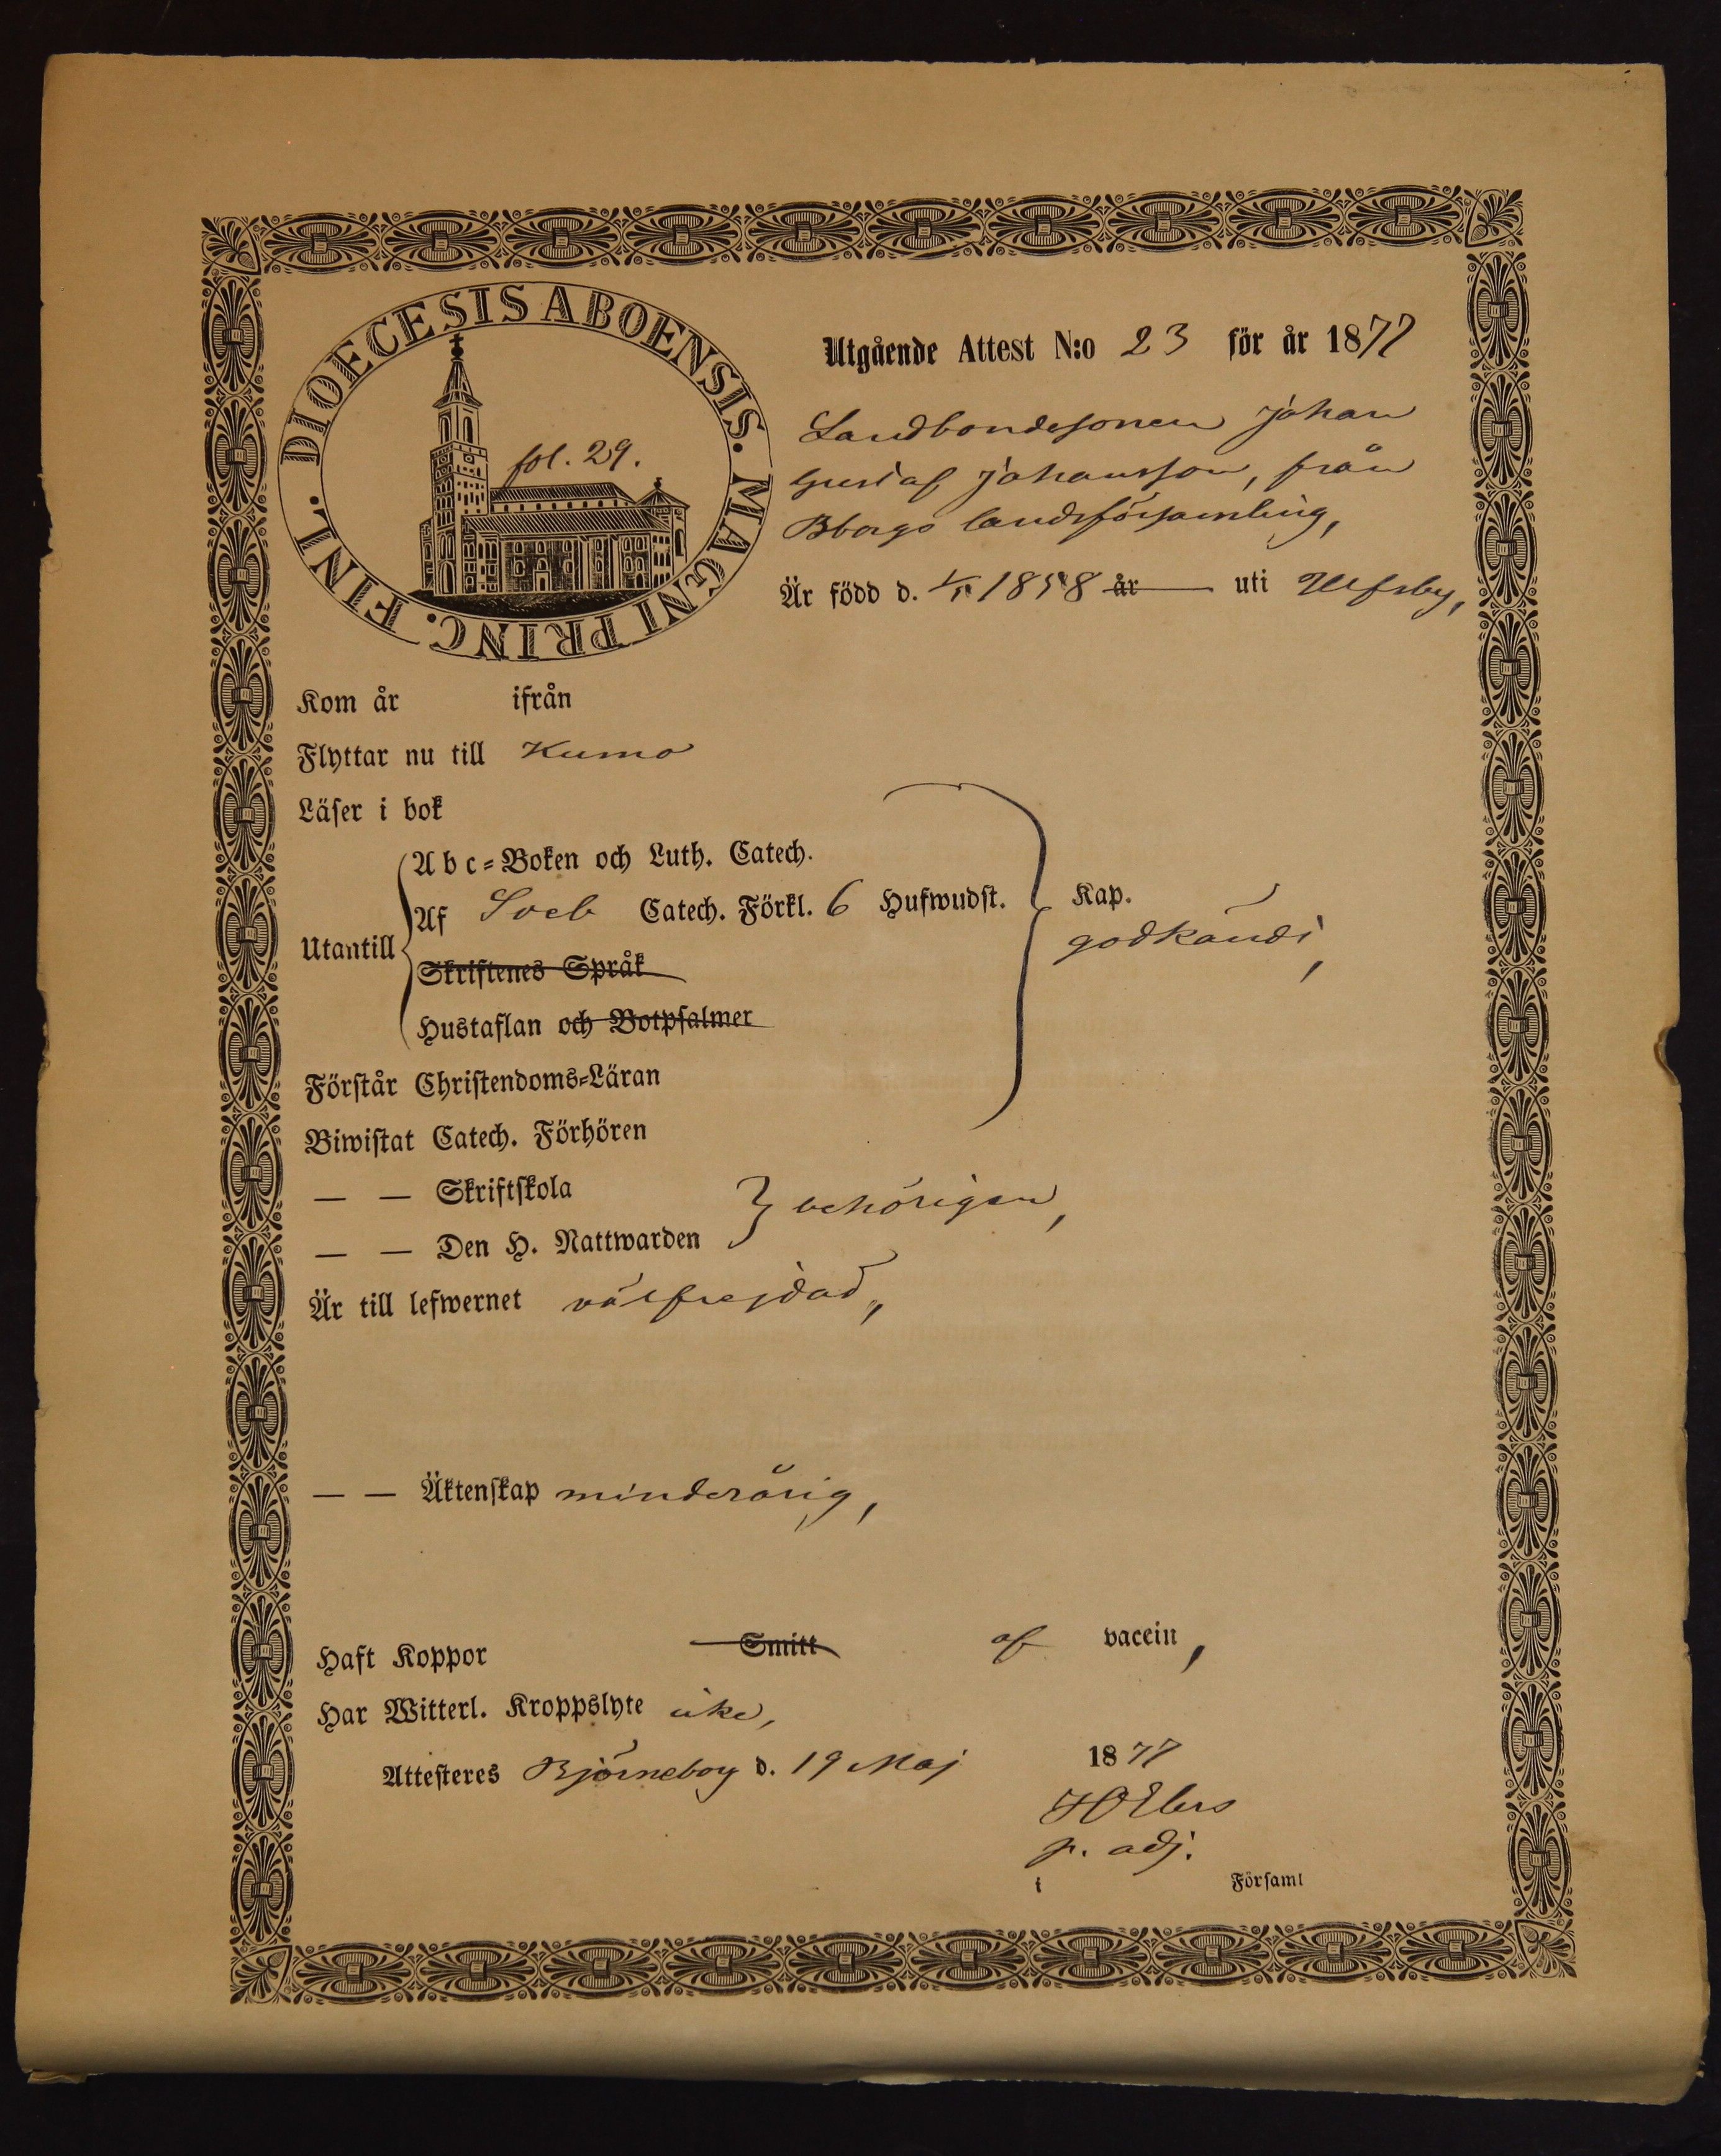 DIOECESIS ABOENSIS. MAGNI PRINC. FINL.
fol. 29.
Utgående Attest N:o 23 för år 1877
Landbondesonen Johan
Gustaf Johansson, från
Bborgs landsförsamling,
Är född d. 1858 år uti Ulfsby,
Kom år ifrån
Flyttar nu till Kumo
Läser i bok
Abc=Boken och Luth. Catech.
Af Sveb Catech. Förkl. 6 Hufwudst. Kap.
Utantill
godkändt,
Skriftenes Språk
Hustaflan och Botpsalmer
Förstår Christendoms=Läran
Biwistat Catech. Förhören
— — Skriftskola
behörigen,
— — Den H. Nattwarden
Är till lefwernet välfrejdad,
— — Äktenskap minderårig,
Haft Koppor Smitt af vaccin,
Har Witterl. Kroppslyte icke,
Attesteres Björneborg d. 19 Maj 1877
p. adj.
i Församl